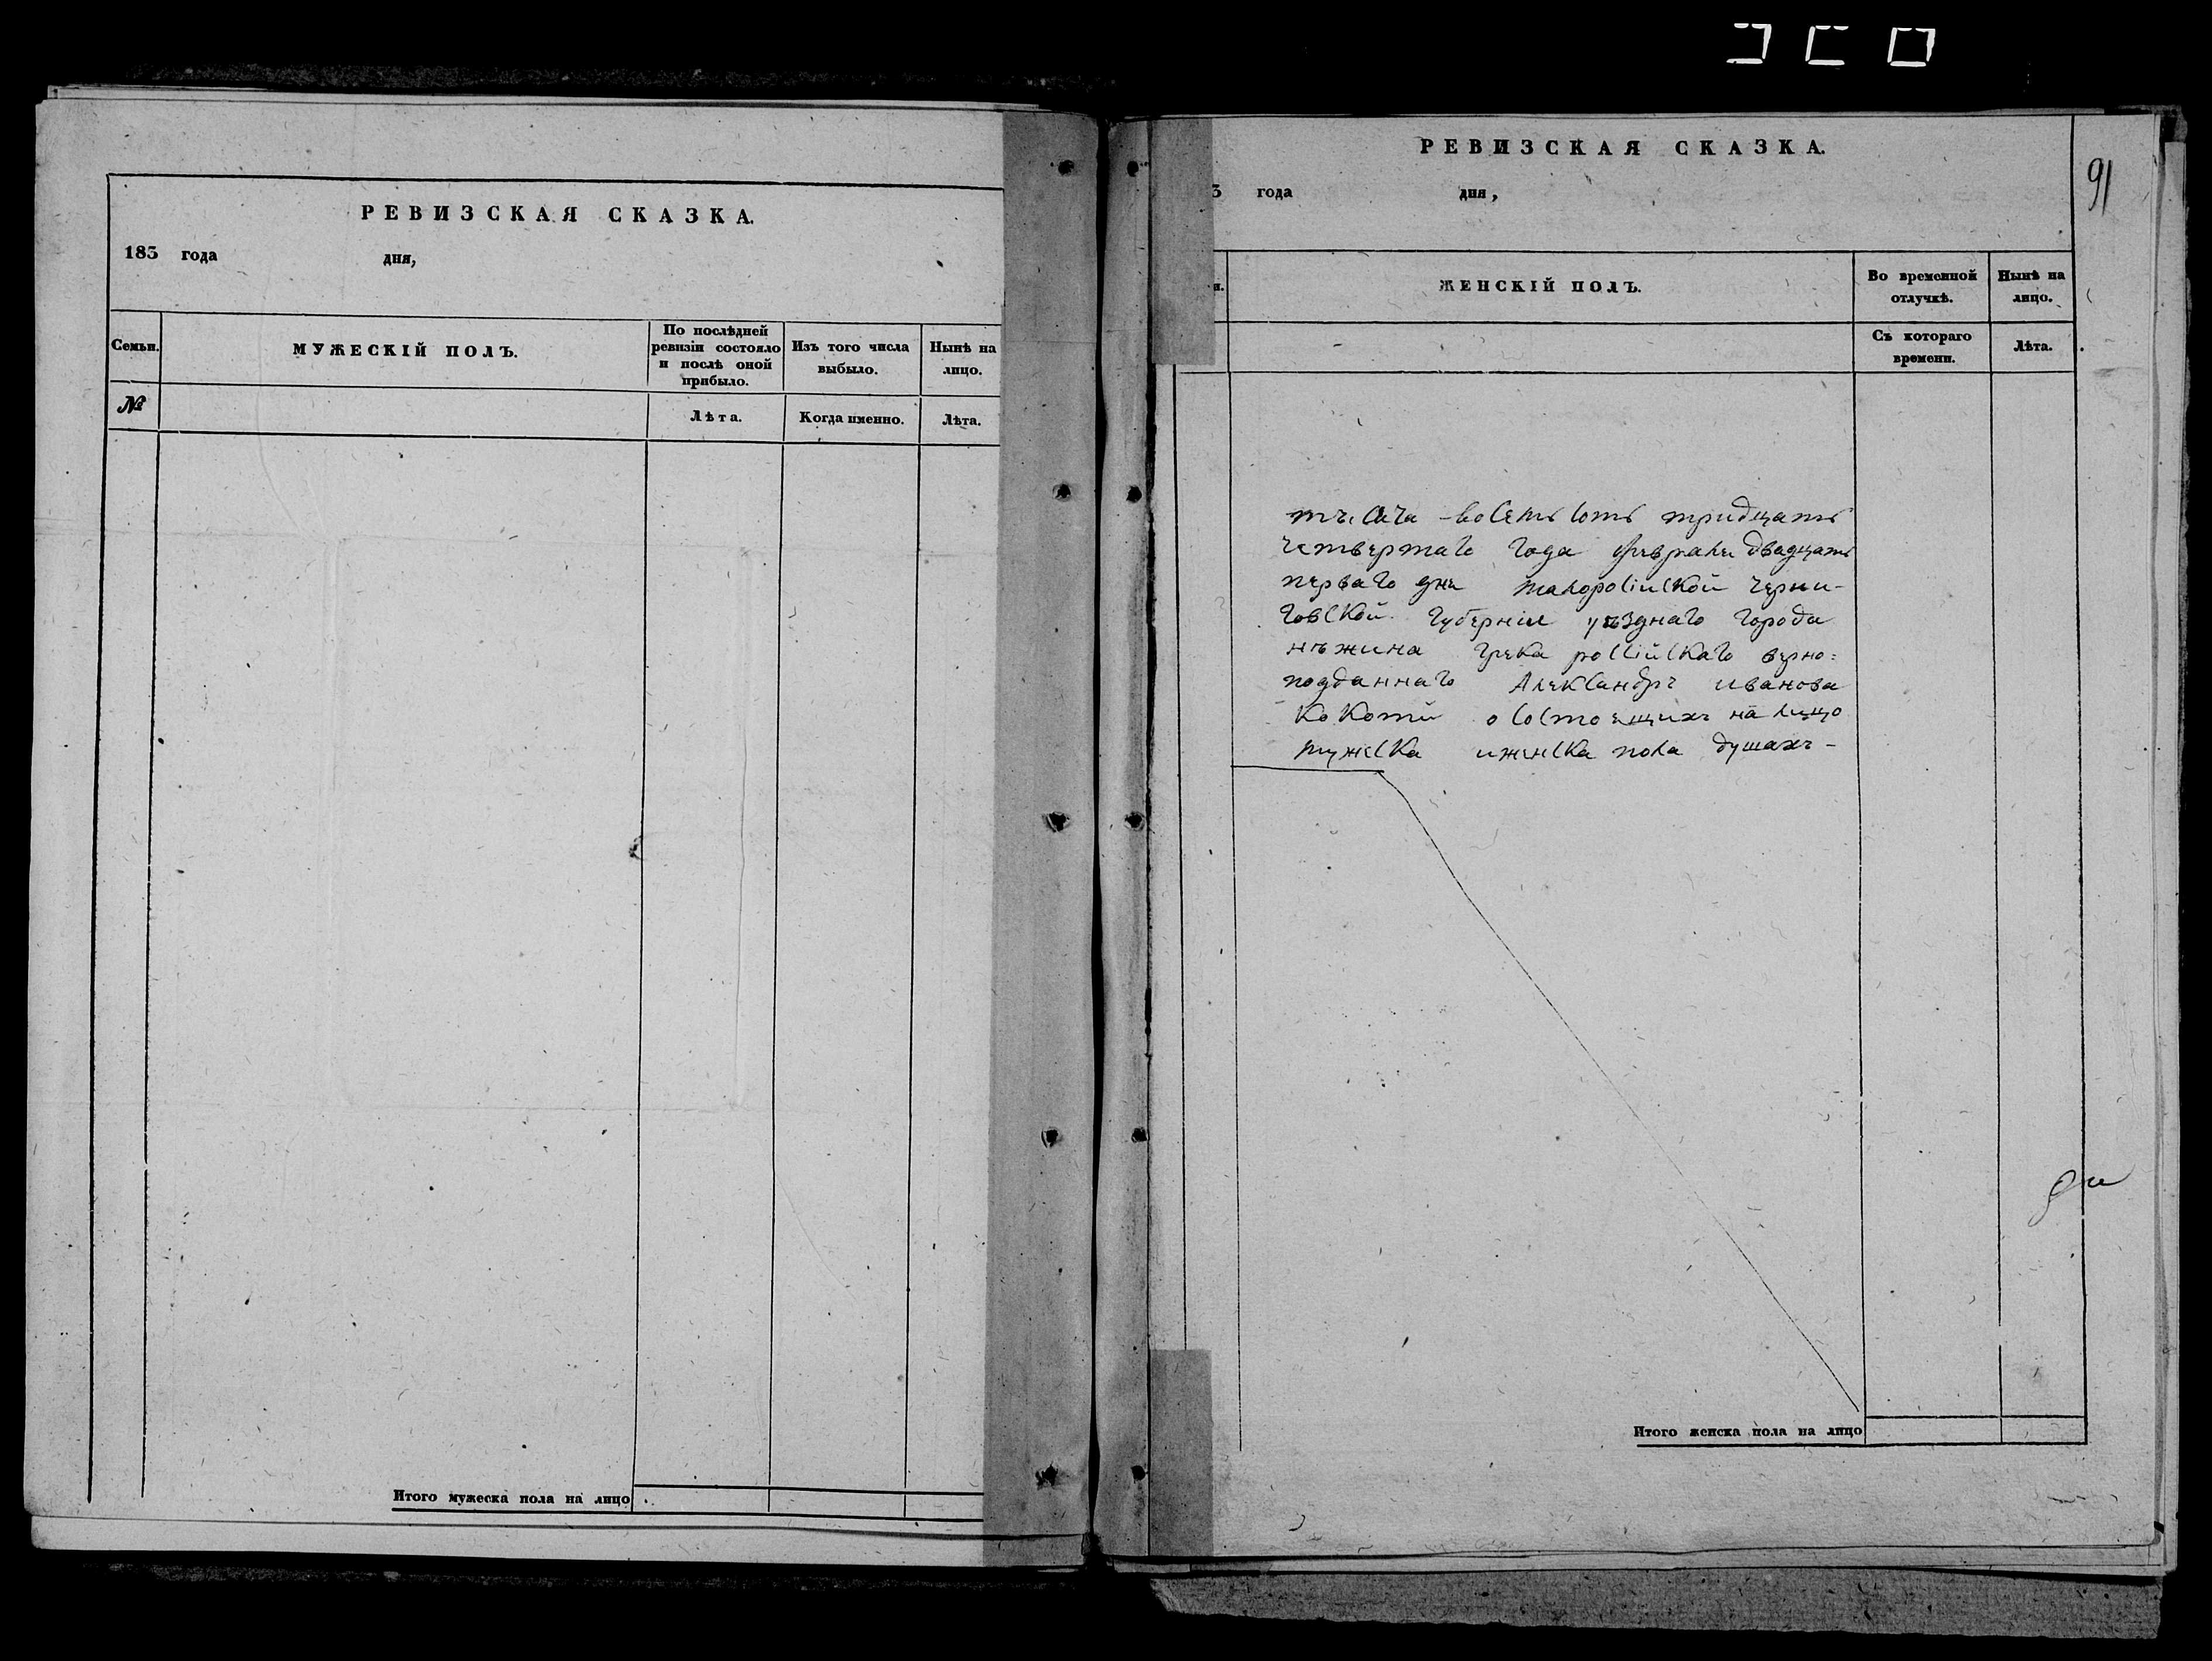 РЕВИЗСКАЯ СКАЗКА.
183 года дня,
Семьи.
МУЖЕСКІЙ ПОЛЪ.
По послѣдней
ревизіи состояло
и послѣ оной
прибыло.
Изъ того числа
выбыло.
Нынѣ на
лицо.
№
Лѣта.
Когда именно.
Лѣта.
Итого мужеска пола на лицо
РЕВИЗСКАЯ СКАЗКА.
91
3 года дня,
и.
ЖЕНСКІЙ ПОЛЪ.
Во временной
отлучкѣ.
Нынѣ на
лицо.
Съ котораго
времени.
Лѣта.
тысяча восемьсотъ тридцать
четвертаго года февраля двадцать
перваго дня малоросійской черни-
говской губерніи уѣзднаго города
нѣжина грека россійскаго верно=
подданнаго Александръ иванова
Кокоти о состоящихъ на лицо
мужеска иженска пола душахъ-
Итого женска пола на лицо